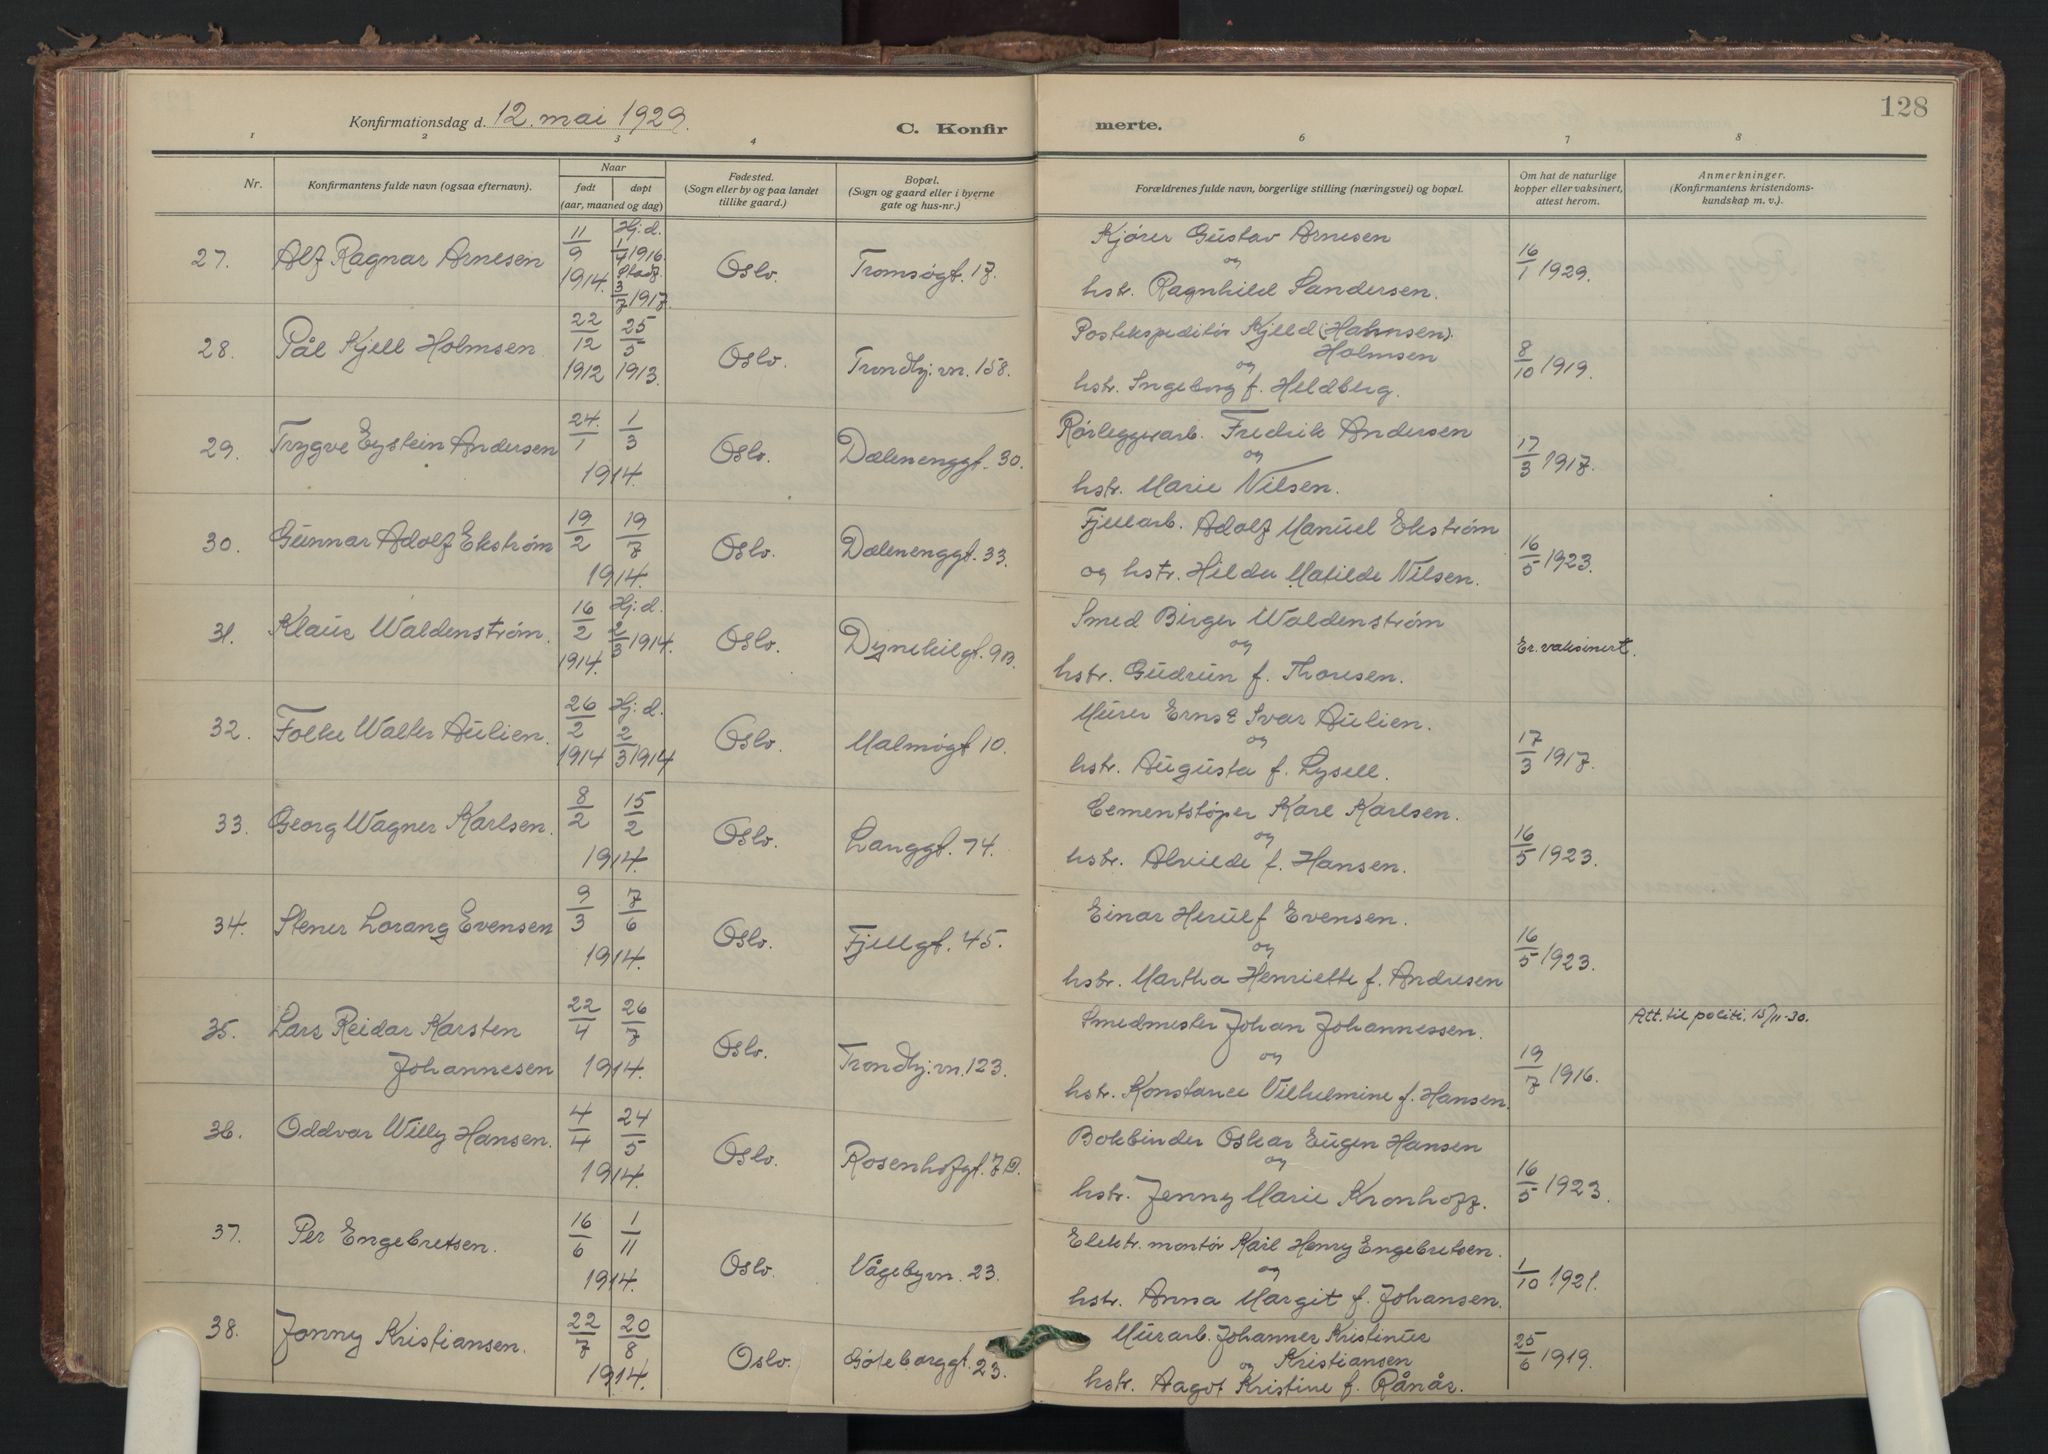 128
Konfirmationsdag d. 12. mai 1929.
C. Konfirmerte.
1 2 3 4 6 7 8
Nr.
Konfirmantens fulde navn (ogsaa efternavn).
Naar
født døpt
(aar, maaned og dag)
Fødested.
(Sogn eller by og paa landet
tillike gaard.)
Bopæl.
(Sogn og gaard eller i byerne
gate og hus-nr.)
Forældrenes fulde navn, borgerlige stilling (næringsvei) og bopæl.
Om hat de naturlige
kopper eller vaksinert,
attest herom.
Anmerkninger.
(Konfirmantens kristendoms-
kundskap m. v.).
27. Alf Ragnar Arnesen 11/9 1914. Hj.d. 1/4 1916. Stadf. 3/7 1917. Oslo. Tromsøgt. 17.
Kjører Gustav Arnesen
og
hstr. Ragnhild Sandersen.
16/1 1929.
28. Pål Kjell Holmsen 22/12 1912 25/5 1913. Oslo. Trondhj.vn. 158.
Postekspeditør Kjeld (Hahnsen).
Holmsen
og
hstr. Ingeborg f. Heldberg.
8/10 1919.
29. Trygve Eystein Andersen 24./1 1/3 1914. Oslo. Dælenenggt. 30.
Rørleggerarb. Fredrik Andersen
og
hstr. Marie Nilsen.
17/3 1917.
30. Gunnar Adolf Ekstrøm 19/2 19/7 1914. Oslo. Dælenenggt. 33.
Fjellarb. Adolf Manuel Ekstrøm
og hstr. Hilda Matilde Nilsen.
16/5 1923.
31. Klaus Waldenstrøm. 16/2 1914. Hj.d. 2/3 1914. Oslo. Dynekilgt. 9B.
Smed Birger Waldenstrøm
og
hstr. Gudrun f. Thoresen.
Er vaksinert.
32. Folke Walter Aulien. 26/2 1914 Hj.d. 2/3 1914 Oslo. Malmøgt 10.
Murer Ernst Ivar Aulien.
og
hstr. Augusta f. Lysell.
17/3 1917.
33. Georg Wagner Karlsen. 8/2 15/2 1914. Oslo. Langgt. 74.
Cementstøper Karl Karlsen.
og
hstr. Alvilde f. Hansen.
16/5 1923.
34. Stener Lorang Evensen 9/3 7/6 1914. Oslo. Fjellgt. 45.
Einar Herulf Evensen.
og
hstr. Martha Henriette f. Andresen
16/5 1923.
35. Lars Reidar Karsten
Johannesen 22/4 26/7 1914. Oslo. Trondhj.vn. 123.
Smedmester Johan Johannessen.
og
hstr. Konstance Vilhelmine f. Hansen.
19/7 1916.
Att. til politi. 15/11-30.
36. Oddvar Willy Hansen. 4/4 24/5 1914. Oslo. Rosenhofgt. 7D.
Bokbinder Oskar Eugen Hansen
og
hstr. Jenny Marie Kronhoff.
16/5 1923.
37. Per Engebretsen. 16/6 1/11 1914. Oslo. Vågebyvn. 23.
Elektr. montør Karl Henry Engebretsen.
og
hstr. Anna Margit f. Johansen.
1/10 1921.
38. Jonny Kristiansen. 22/7 20/8 1914. Oslo. Göteborggt. 23.
Murarb. Johannes Kristinus
og Kristiansen
hstr. Aagot Kristine f. Rånås.
25/6 1919.